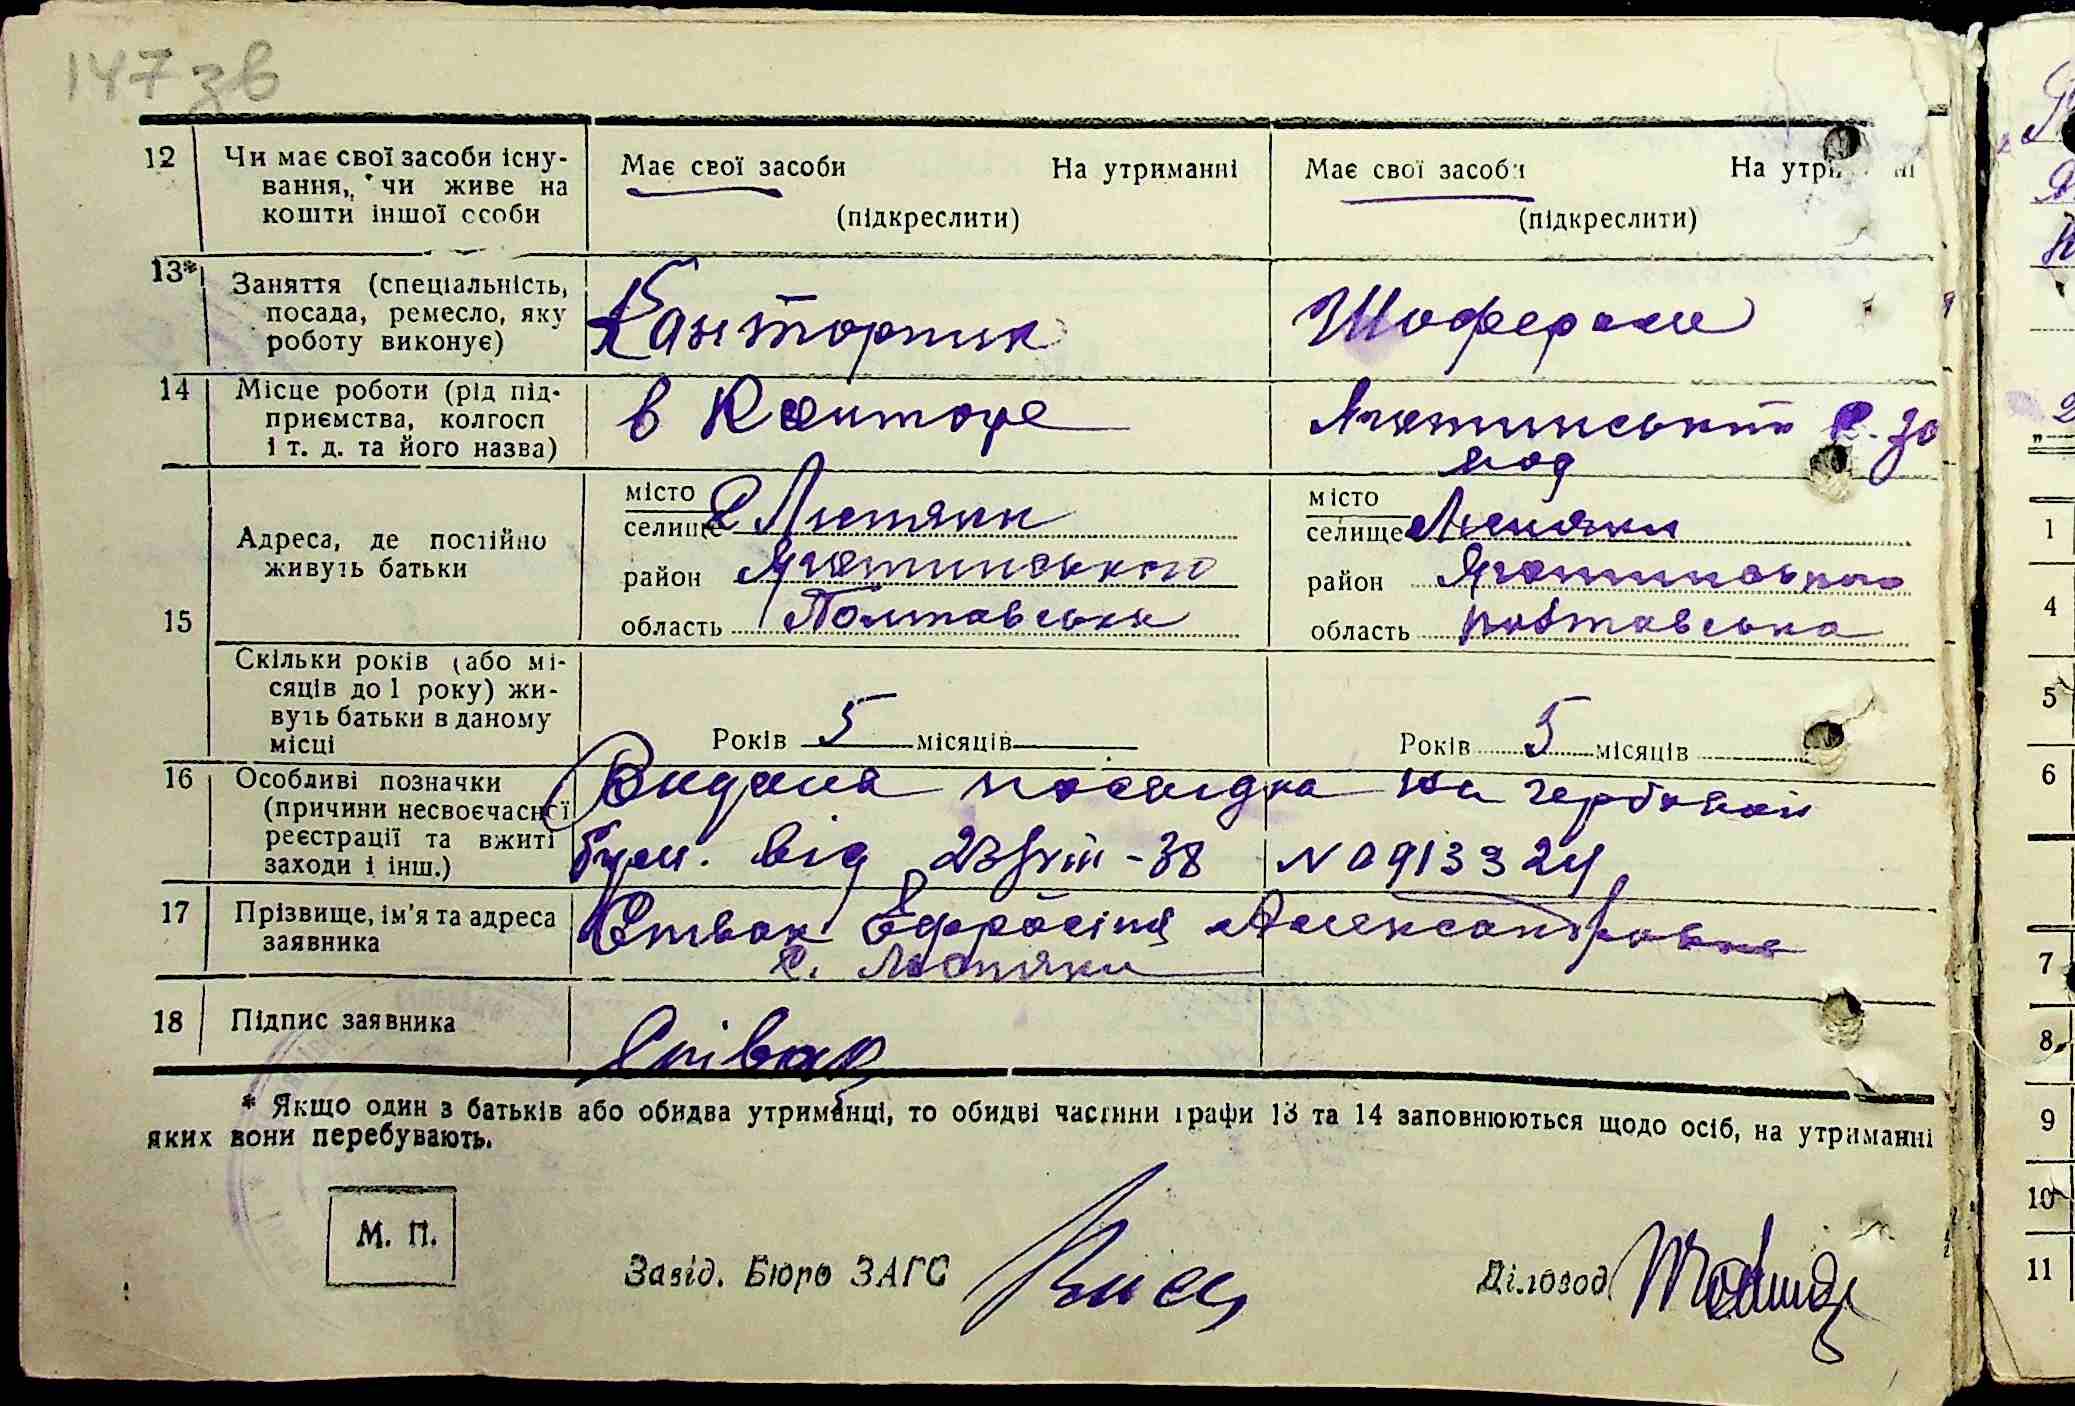 147 зв
12 Чи має свої засоби існу- Має свої засоби На утриманні Має свої засоби На утри
вання, чи живе на
кошти іншої ссоби (підкреслити) (підкреслити)
13* Заняття (спеціальність,
посада, ремесло, яку Канторник Шофером
роботу виконує)
14 Місце роботи (рід під-
приємства, колгосп в Конторе Яготинський
і т. д. та його назва)
місто місто
селище с Лютяки селище
Адреса, де постійно
живуть батьки район Яготинського район Яготинського
15 область Полтавська область Полтавська
Скільки років (або мі-
сяців до 1 року) жи-
вуть батьки в даному
місці Років 5 місяців Років 5 місяців
16 Особливі позначки Видана посвідка на гербовой
(причини несвоєчасної
реєстрації та вжиті бум. від 23/VIII-38 № 0913324
заходи і інш.)
17 Прізвище, ім'я та адреса Співак Єфросіня Александровна
заявника с.
18 Підпис заявника Співак
* Якщо один з батьків або обидва утриманці, то обидві частини графи 13 та 14 заповнюються щодо осіб, на утриманні
яких вони перебувають.
М. П.
Завід. Бюро ЗАГС Діловод
1
4
5
6
7
8
9
10
11